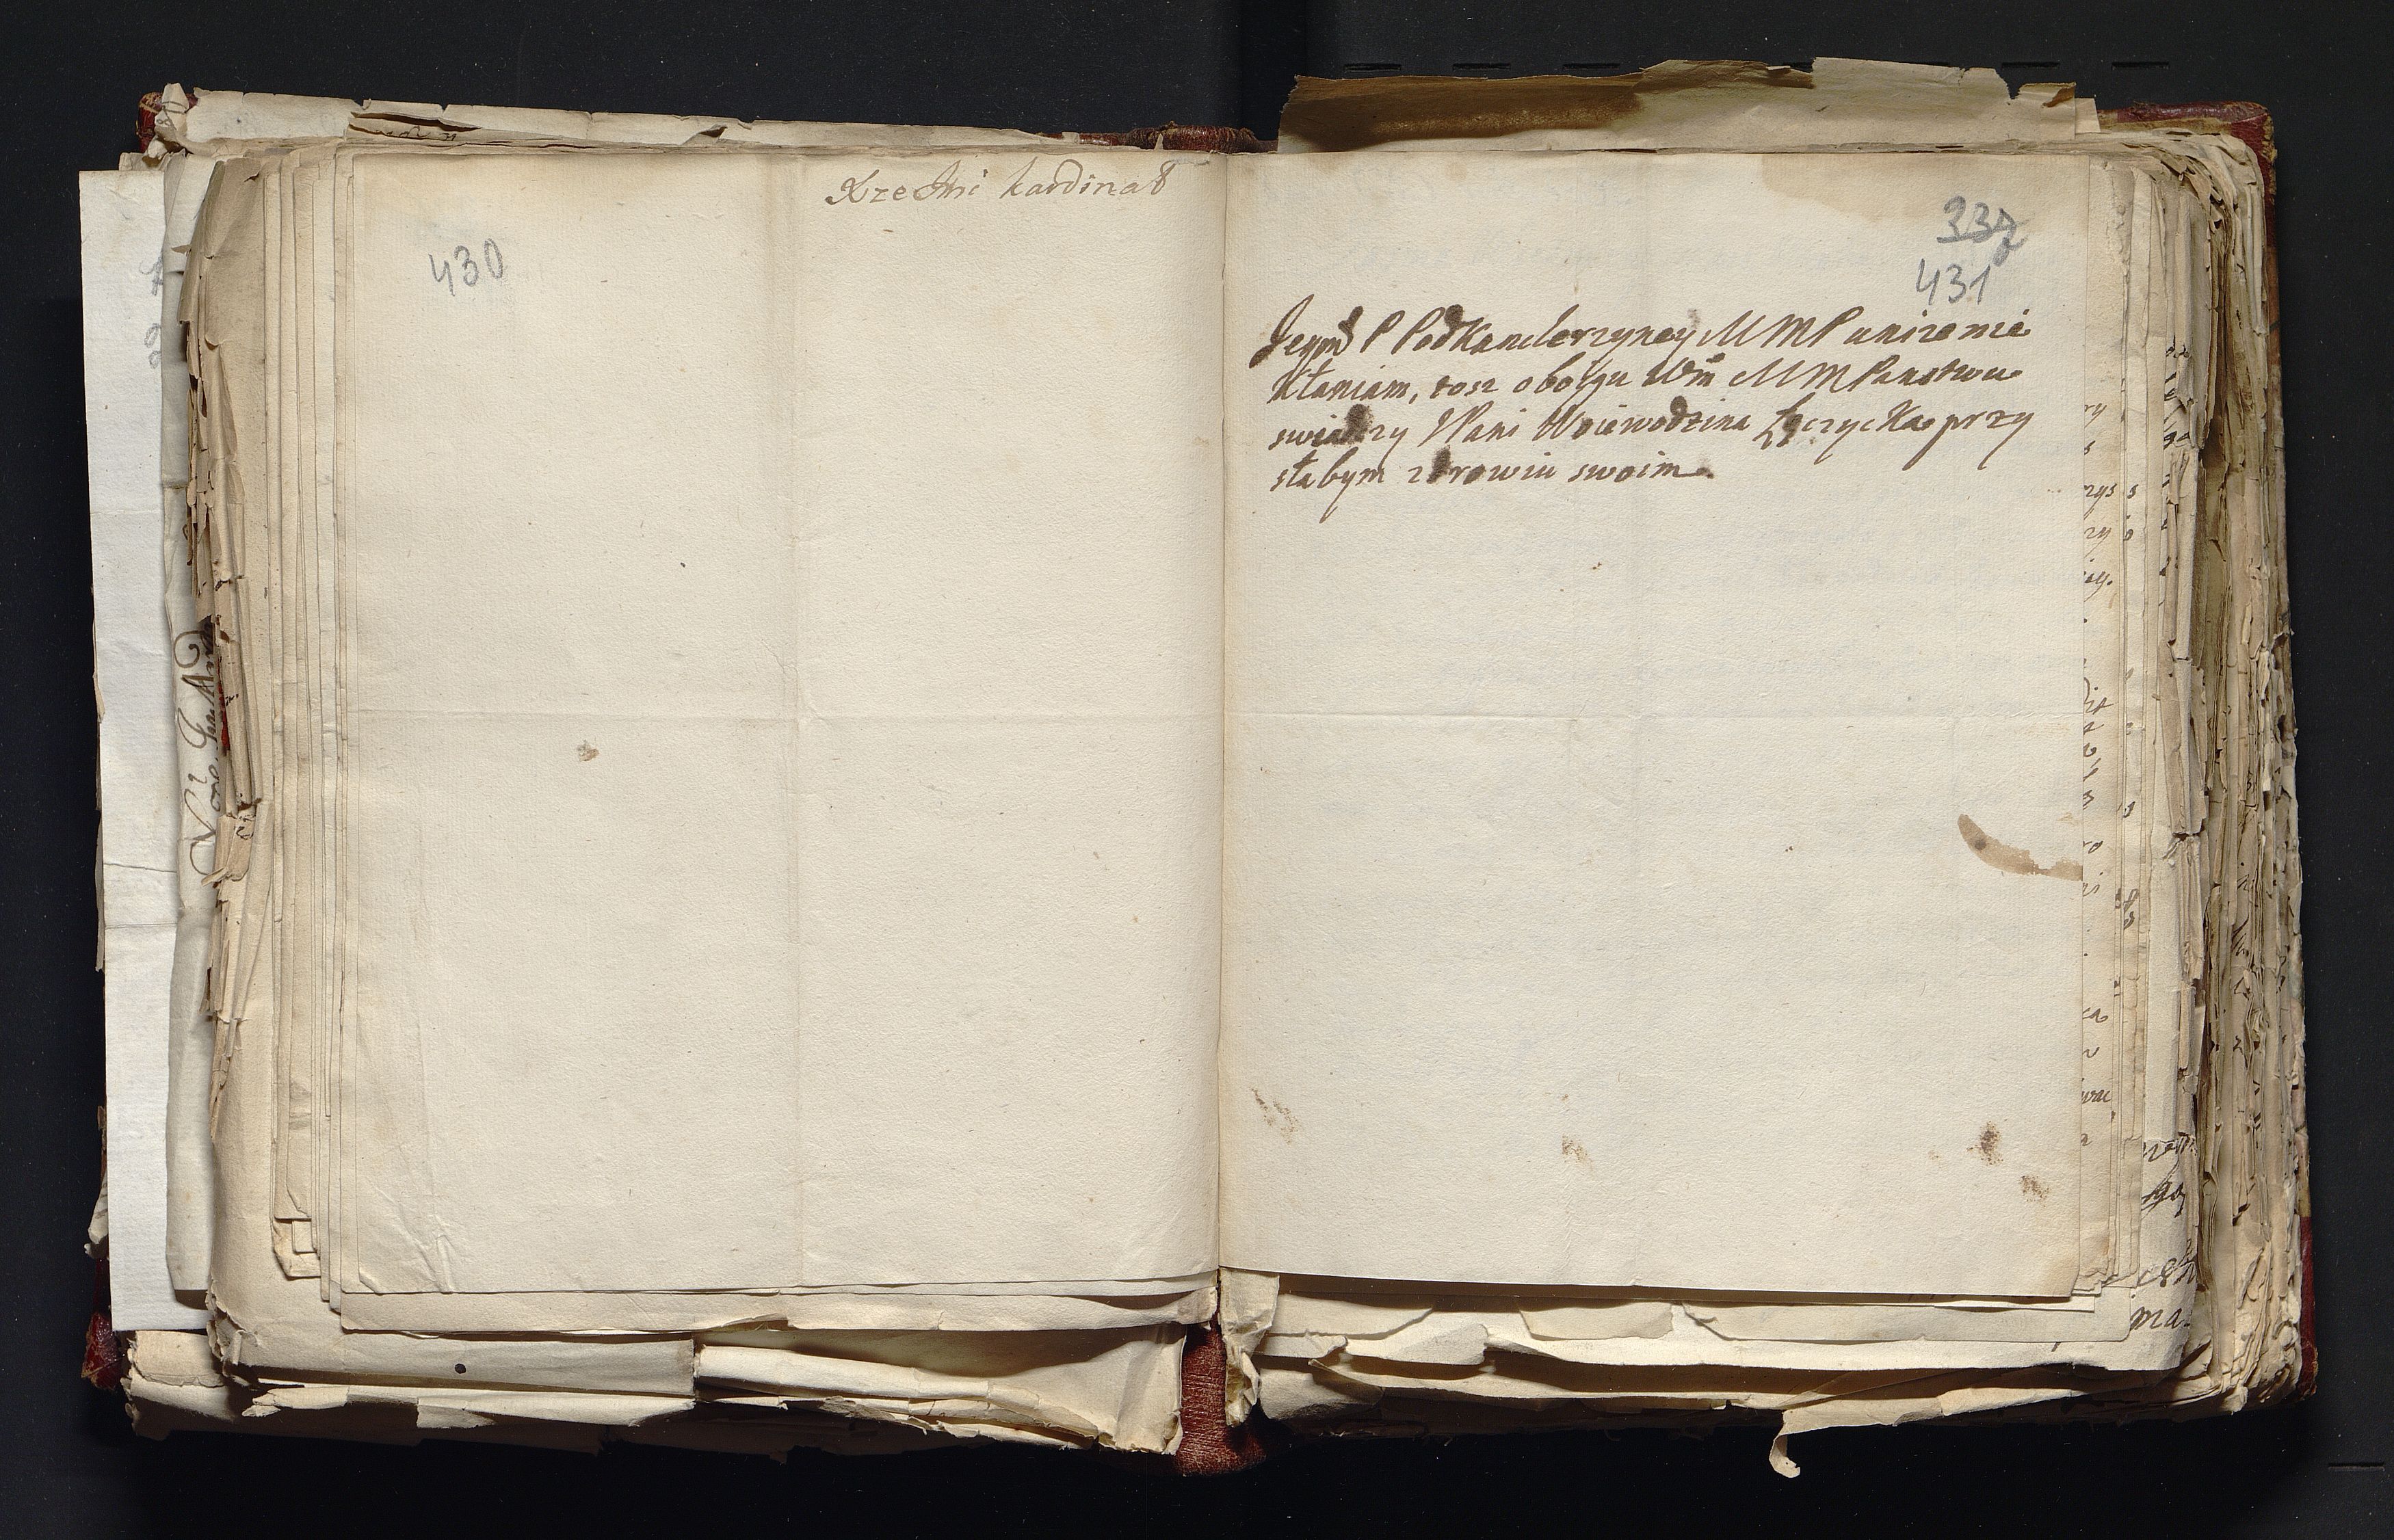 Xze Jmć kardinał
430
337
431
Jeymć P PodKanclerzyney M M P unizenie
kłaniam, tosz oboygu Wm M M Panstwu
swiadczy JPani Woiewodzina Łęczycka przy
słabym zdrowiu swoim